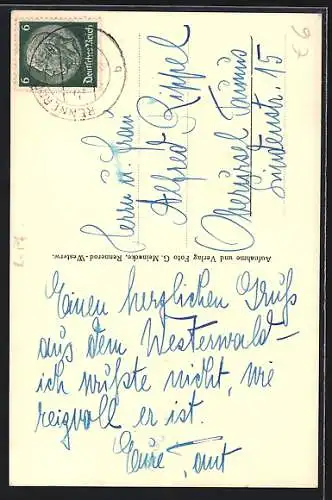 Einen herzlichen Gruß
aus dem Westerwald –
ich wußte nicht, wie
reizvoll er ist.
Eure
Aufnahme und Verlag Foto G. Meinacke, Rennerod-Westerw.
Herrn u. Frau
Alfred Rippel
Oberursel Taunus
Lindenstr. 15
6 Deutsches Reich 6
€6